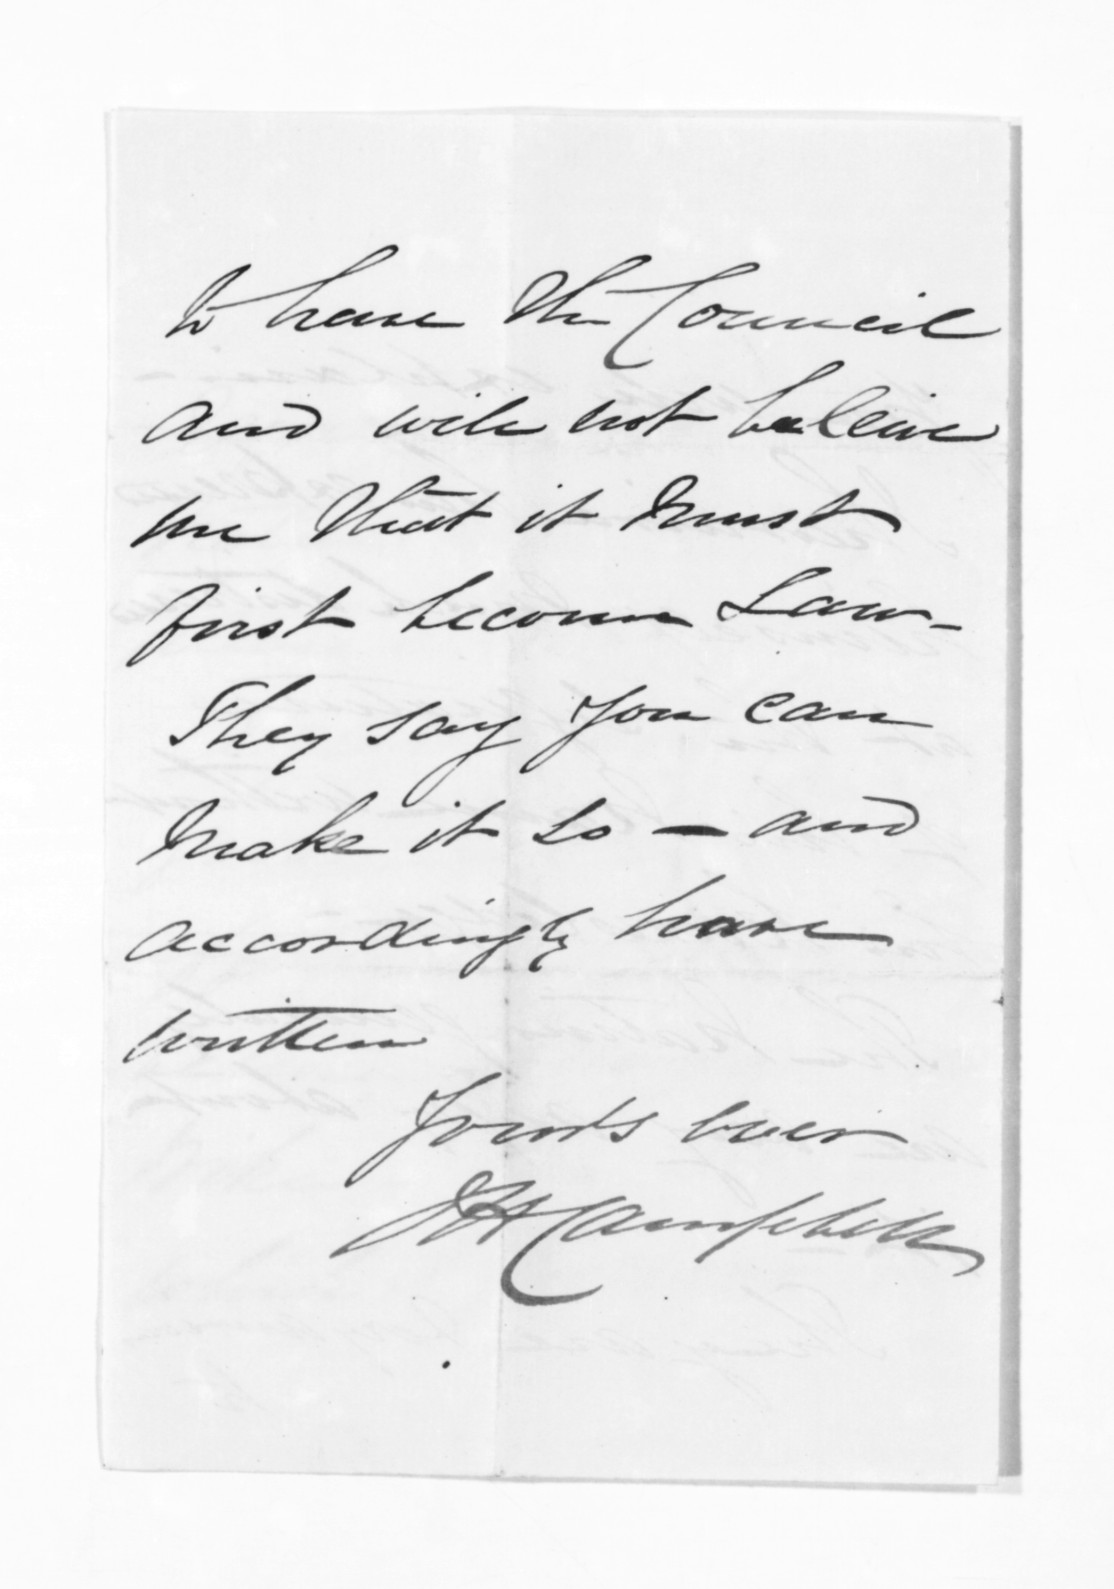 to have the Council
and will not beleive
me that it must
first become Law -
They say you can
make it so - and
accordingly have
written
Yours ever
JH Campbell